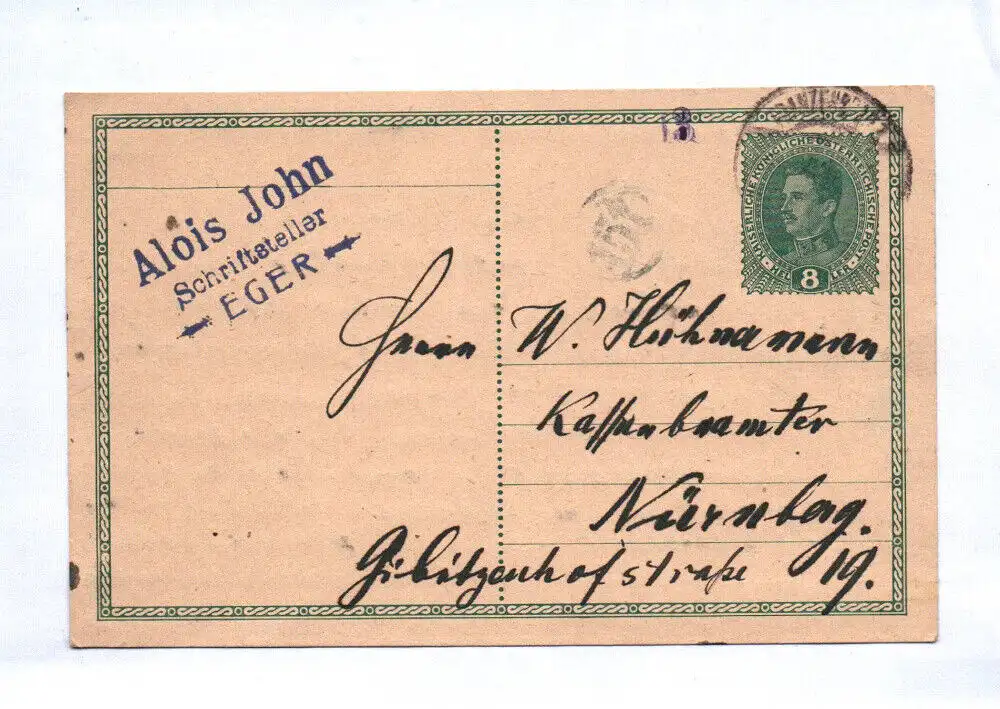 Alois John
Schriftsteller
EGER
KAISERLICHE KÖNIGLICHE ÖSTERREICHISCHE POST
8
HELLER
Herrn W. Hühnamann
Kassenbeamter
Nürnberg.
Gibitzenhofstraße 19.